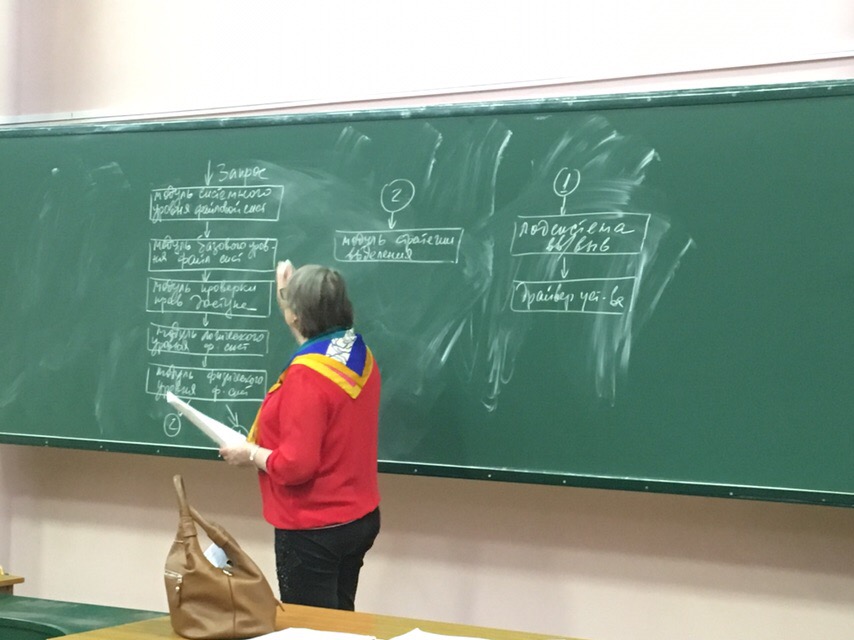 Запрос
модуль системного
уровня файловой сист
модуль базового уров-
ня файл сист
модуль проверки
прав доступа
модуль логического
уровня ф. сист
модуль физического
уровня ф. сист
2
2
модуль стратегии
выделения
1
Подсистема
вв/выв
Драйвер уст-ва